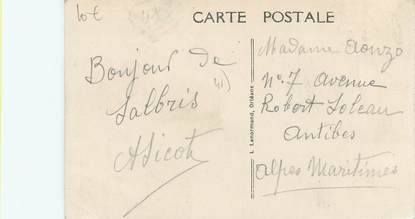 10€
CARTE POSTALE
Bonjour de
Salbris
41)
L. Lenormand, Orléans
Madame
N°. 7 Avenue
Robert Soleau
Antibes
Alpes Maritimes